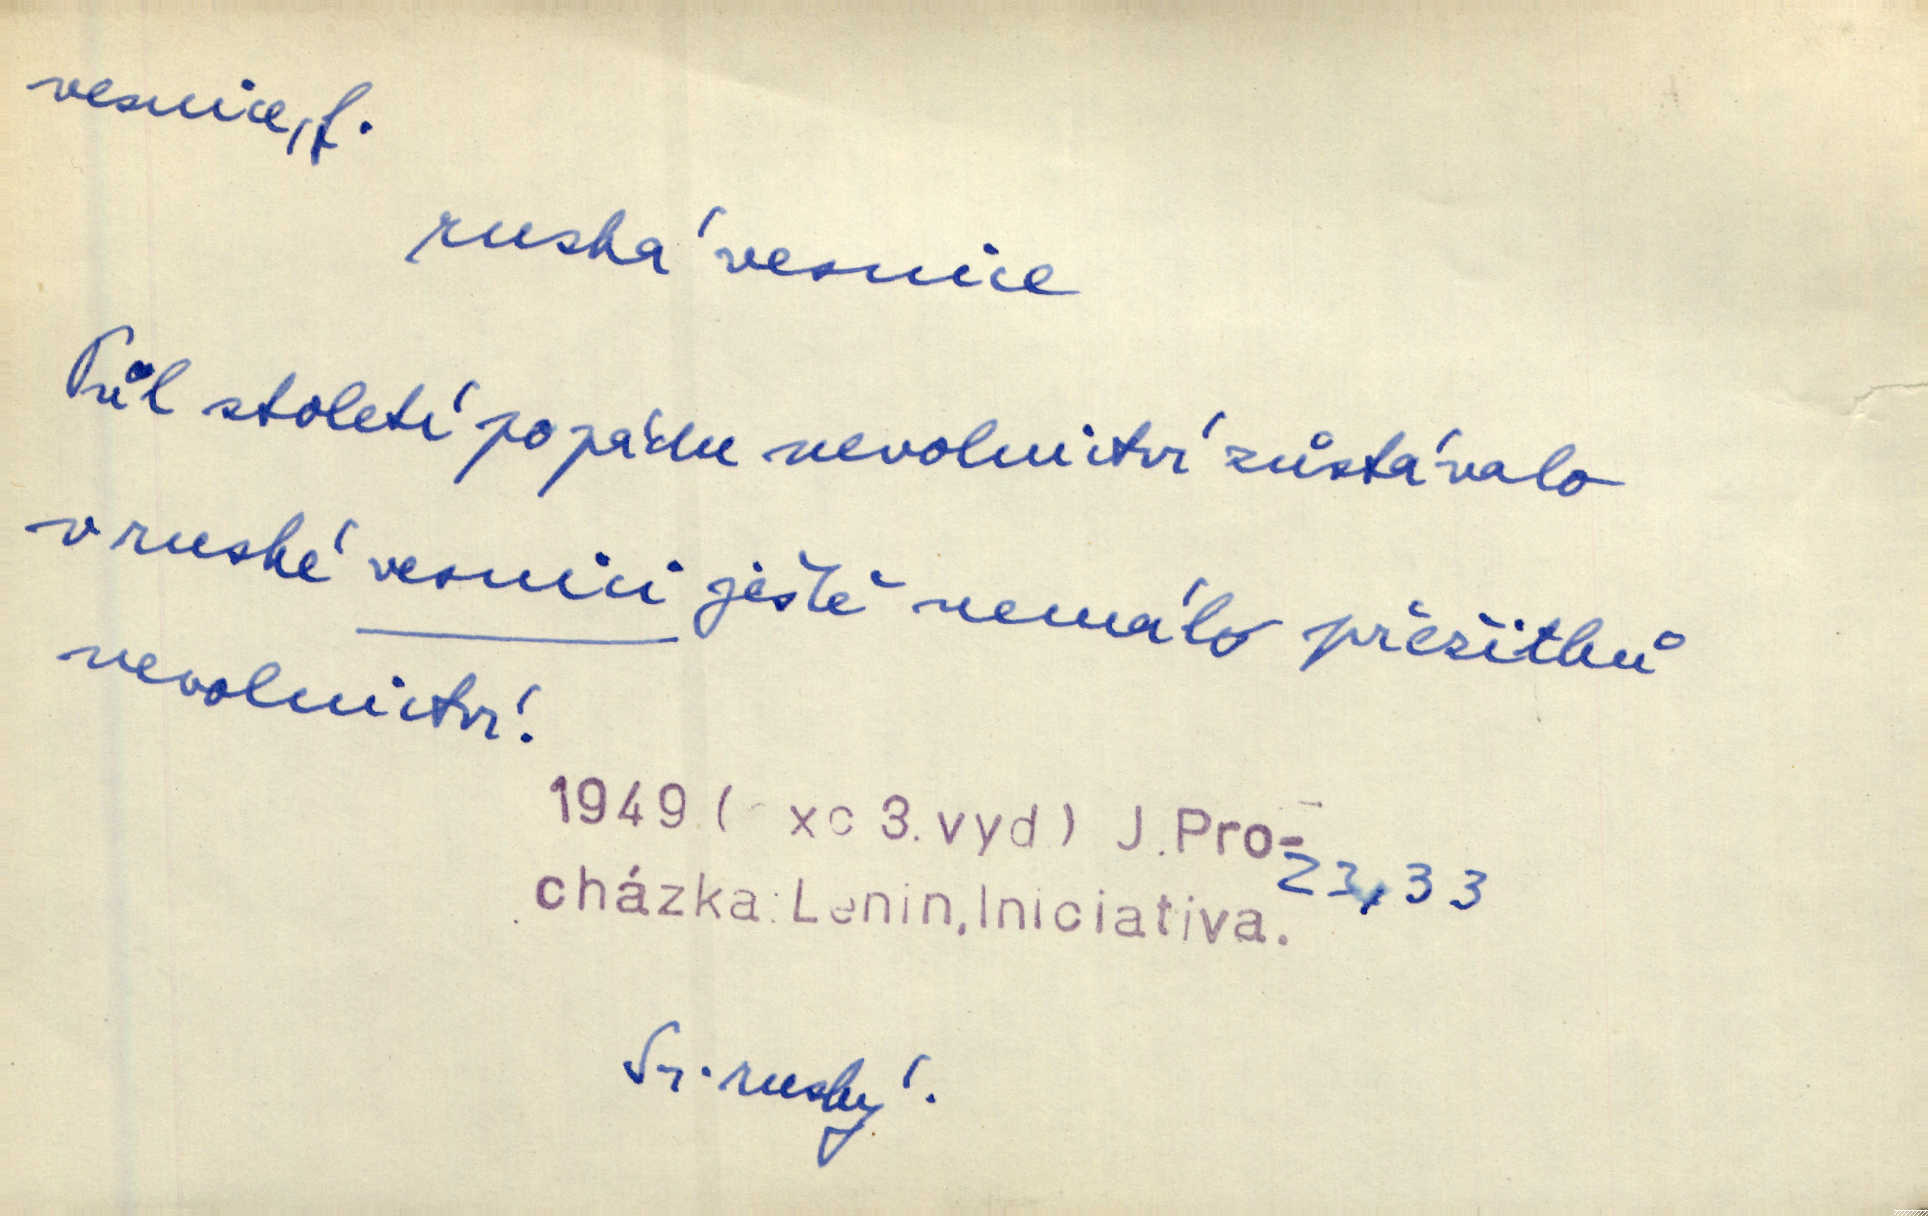 vesnice, f.
ruská vesnice
Půl století po pádu nevolnictví zůstávalo
v ruské vesnici ještě nemálo přežitků
nevolnictví.
1949 ( xc 3. vyd.) J. Pro-
cházka: Lenin, Iniciativa. 23, 33
Sr. ruský.